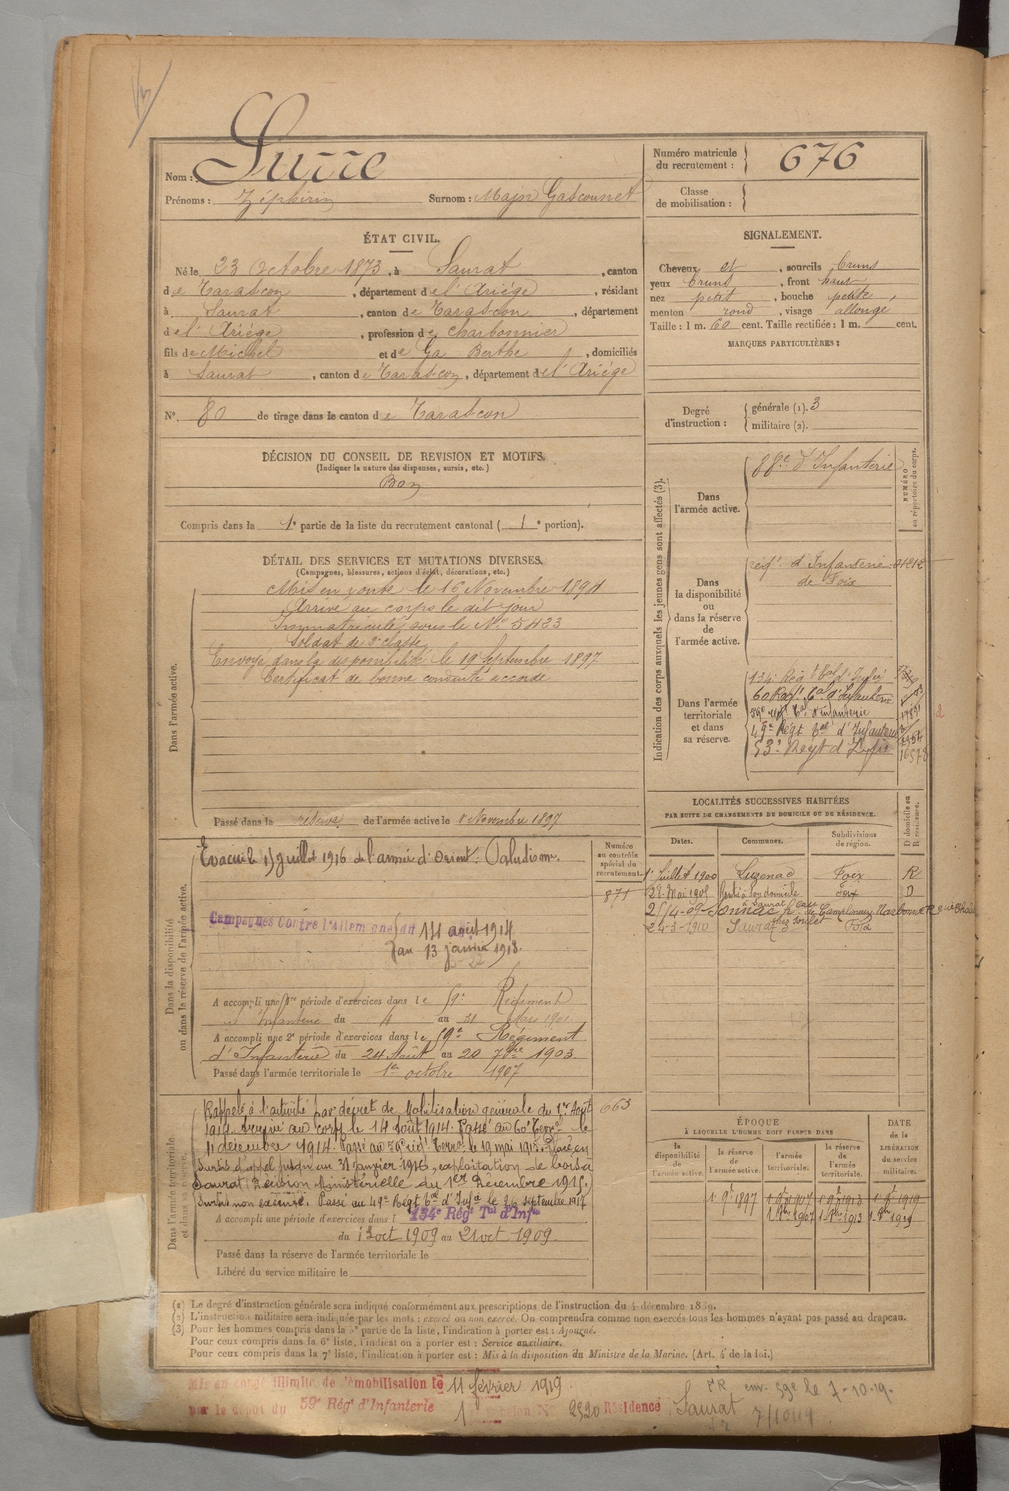 Nom : Surre
Prénoms : Zéphirin Surnom : Majou Gascounet
Numéro matricule du recrutement : 676
Classe de mobilisation :
ÉTAT CIVIL.
Né le 23 Octobre 1873, à Saurat, canton
de Tarascon, département de l'Ariége, résidant
à Saurat, canton de Tarascon, département
de l'Ariége, profession de Charbonnier
fils de Michel et de Ga Berthe, domiciliés
à Saurat, canton de Tarascon, département de l'Ariége
N° 80 de tirage dans le canton de Tarascon
SIGNALEMENT.
Cheveux et, sourcils bruns
yeux bruns, front haut
nez petit, bouche petite,
menton rond, visage allongé
Taille : 1 m. 60 cent. Taille rectifiée : 1 m. cent.
MARQUES PARTICULIÈRES :
Degré d'instruction : générale (1). 3
militaire (2).
DÉCISION DU CONSEIL DE REVISION ET MOTIFS.
(Indiquer la nature des dispenses, sursis, etc.)
Bon
Compris dans la 1e partie de la liste du recrutement cantonal ( 1e portion).
DÉTAIL DES SERVICES ET MUTATIONS DIVERSES.
(Campagnes, blessures, actions d'éclat, décorations, etc.)
Dans l'armée active.
Mis en route le 16 Novembre 1894
Arrivé au corps le dit jour
Immatriculé sous le N° 5423
Soldat de 2e classe
Envoyé dans la disponibilité le 19 Septembre 1897
Certificat de bonne conduite accordé
Passé dans la réserve de l'armée active le 1 Novembre 1897
Indication des corps auxquels les jeunes gens sont affectés (3).
NUMÉRO au répertoire du corps.
Dans l'armée active.
88e d'Infanterie
Dans la disponibilité ou dans la réserve de l'armée active.
régt d'Infanterie
de Foix
Dans l'armée territoriale et dans sa réserve.
134e Rég t Tal d'Infie
60 Régt Tal d'Infanterie
59e régt Tal d'Infanterie
49e Régt Tal d'Infanterie
53e Regt d'Infie
Dans la disponibilité ou dans la réserve de l'armée active.
Numéro au contrôle spécial du recrutement.
871
Evacué le 15 Juillet 1916 de l'armée d'Orient. Paludisme.
Campagnes Contre l'Allemagne du 14 août 1914
au 13 janvier 1918.
A accompli une 1re période d'exercices dans le 59e Régiment
d'Infanterie du 4 au 31 Mars 1901
A accompli une 2e période d'exercices dans le 59e Régiment
d'Infanterie du 24 Août au 20 7bre 1903
Passé dans l'armée territoriale le 1er octobre 1907
LOCALITÉS SUCCESSIVES HABITÉES
PAR SUITE DE CHANGEMENTS DE DOMICILE OU DE RÉSIDENCE.
Dates. Communes. Subdivisions de région. D domicile ou R résidence.
1 Juillet 1900 Luzenac Foix R
28 Mai 1905 Rentré à son domicile Foix D
à Saurat
2/4-09 Narbonne R
24-3-1910 Saurat Foix
Dans l'armée territoriale et dans sa réserve.
663
Rappelé à l'activité par décret de Mobilisation générale du 1er Août
1914. Arrivé au corps le 14 août 1914. Passé au 60e Terral le
11 décembre 1914. Passé au 59e régt Terral le 19 mai 1915. Placé en
sursis d'appel jusqu'au 31 janvier 1916, exploitation de
Saurat. Décision Ministérielle du 1er Décembre 1915.
Sursis non exécuté. Passé au 49e Régt Tal d'Infie le 26 septembre 1917
A accompli une période d'exercices dans l 134e Régt Tal d'Infie
du 13 oct 1909 au 21 oct 1909
Passé dans la réserve de l'armée territoriale le
Libéré du service militaire le
ÉPOQUE
À LAQUELLE L'HOMME DOIT PASSER DANS
la disponibilité de l'armée active. la réserve de l'armée active. l'armée territoriale. la réserve de l'armée territoriale.
DATE de la LIBÉRATION du service militaire.
1 9e 1897 1 8e 1907 1 8e 1913 1 8e 1919
1 8bre 1907 1 8bre 1913 1 8bre 1919
(1) Le degré d'instruction générale sera indiqué conformément aux prescriptions de l'instruction du 4 décembre 1889.
(2) L'instruction militaire sera indiquée par les mots : exercé ou non exercé. On comprendra comme non exercés tous les hommes n'ayant pas passé au drapeau.
(3) Pour les hommes compris dans la 5e partie de la liste, l'indication à porter est : Ajourné.
Pour ceux compris dans la 6e liste, l'indication à porter est : Service auxiliaire.
Pour ceux compris dans la 7e liste, l'indication à porter est : Mis à la disposition du Ministre de la Marine. (Art. 4 de la loi.)
Mis en congé illimité de démobilisation le 11 février 1919.
par le dépôt du 59e Régt d'Infanterie 1 échelon N° 2320 Résidence Saurat
env. 59e le 7-10-19